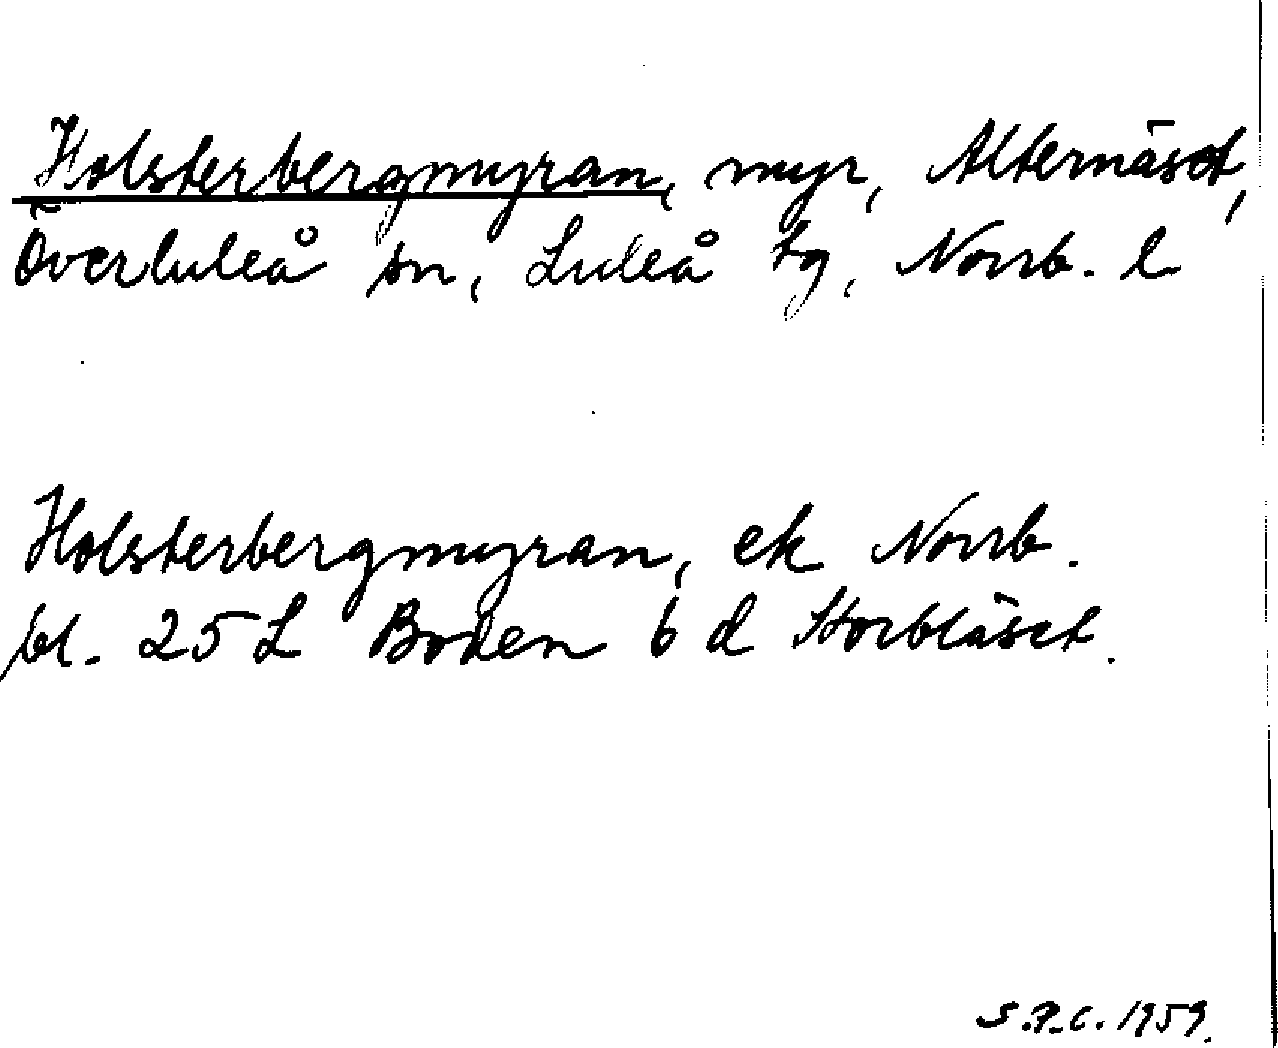 Holsterbergmyran, myr, Alternäset,
Överluleå sn, Luleå tg, Norrb. l
Holsterbergmyran, ek Norrb.
bl. 25 L Boden 6 d Storbläset.
S.P.C. 1959.